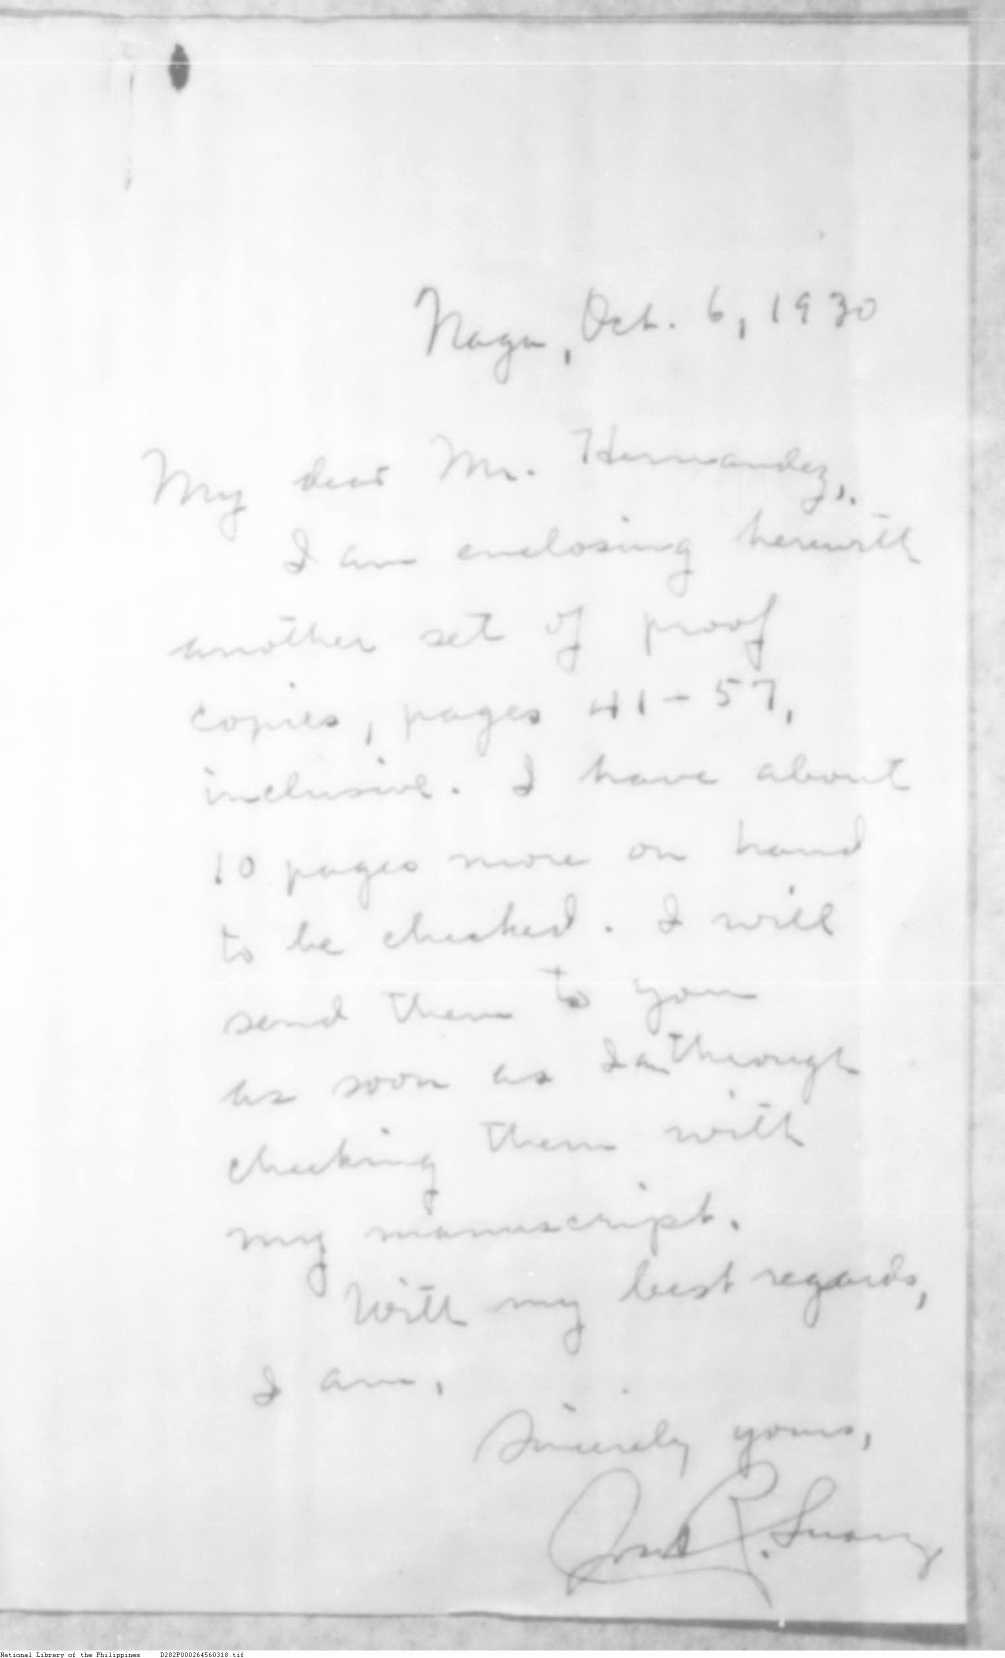 Naga, Oct. 6, 1930
My dear Mr. Hernandez,.
I am enclosing herewith
another set of proof
copies, pages 41-57,
inclusive. I have about
10 pages more on hand
to be checked. I will
send them to you
as soon as I am through
checking them with
my manuscript.
With my best regards,
I am,
Sincerely yours,
José R. Suarez
National Library of the Philippines D282P000264560318.tif